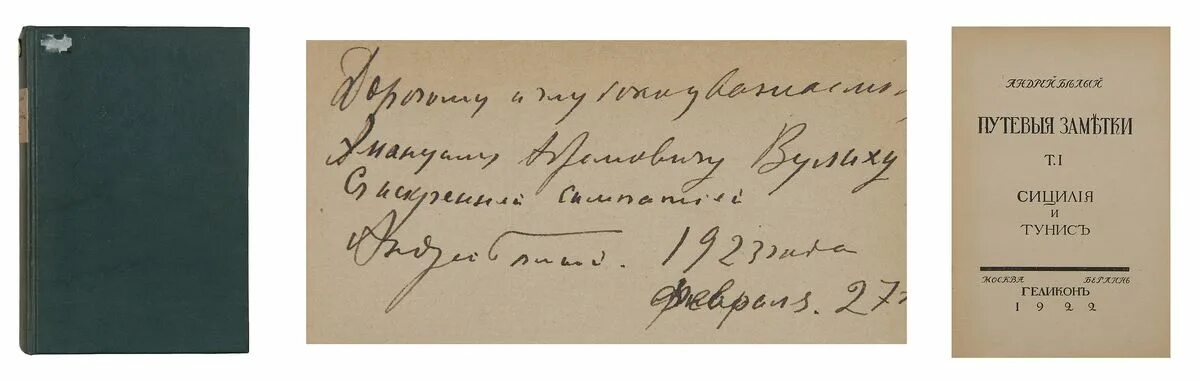 Дорогому и глубокоуважаемому
Эмануилу Абрамовичу Вулиху
с искренней симпатией
Андрей Белый. 1923 года
февраля. 27
АНДРЕЙ БѢЛЫЙ
ПУТЕВЫЯ ЗАМѢТКИ
Т.I
СИЦИЛIЯ
И
ТУНИСЪ
МОСКВА БЕРЛИНЪ
ГЕЛИКОНЪ
1922